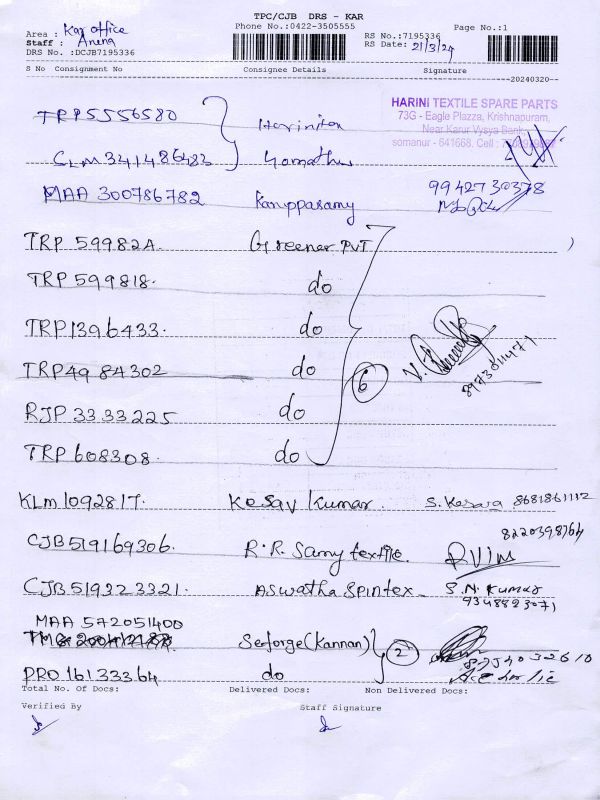 TPC/CJB DRS - KAR
Phone No.:0422-3505555
Area : Kar office
Staff : Aruna
DRS No. :DCJB7195336
RS No.:7195336
RS Date: 21/3/24
Page No.:1
S No Consignment No Consignee Details Signature
20240320
HARINI TEXTILE SPARE PARTS
73G - Eagle Plazza, Krishnapuram,
Near Karur Vysya Bank,
somanur - 641668. Cell :
TRP5556580 Harinitex
CLM341486483 Gomathy
MAA 300786782 Karuppasamy 9942730378
TRP 59982A. Greener PVT
TRP 599818. do
TRP1396433 do
TRP4984302 do
6
8973011471
RJP 3333225 do
TRP 608308. do
KLM1092817. Kesav Kumar. S. Kesava 8681861112
CJB519169306. R.R. Samy textile. 8220398764
CJB519223321. Aswatha Spintex. S.N. Kumar
9348823071
MAA 572051400
Seeforge(Kannan) 2
PRO 16133364 do
Total No. Of Docs: Delivered Docs: Non Delivered Docs:
Verified By Staff Signature